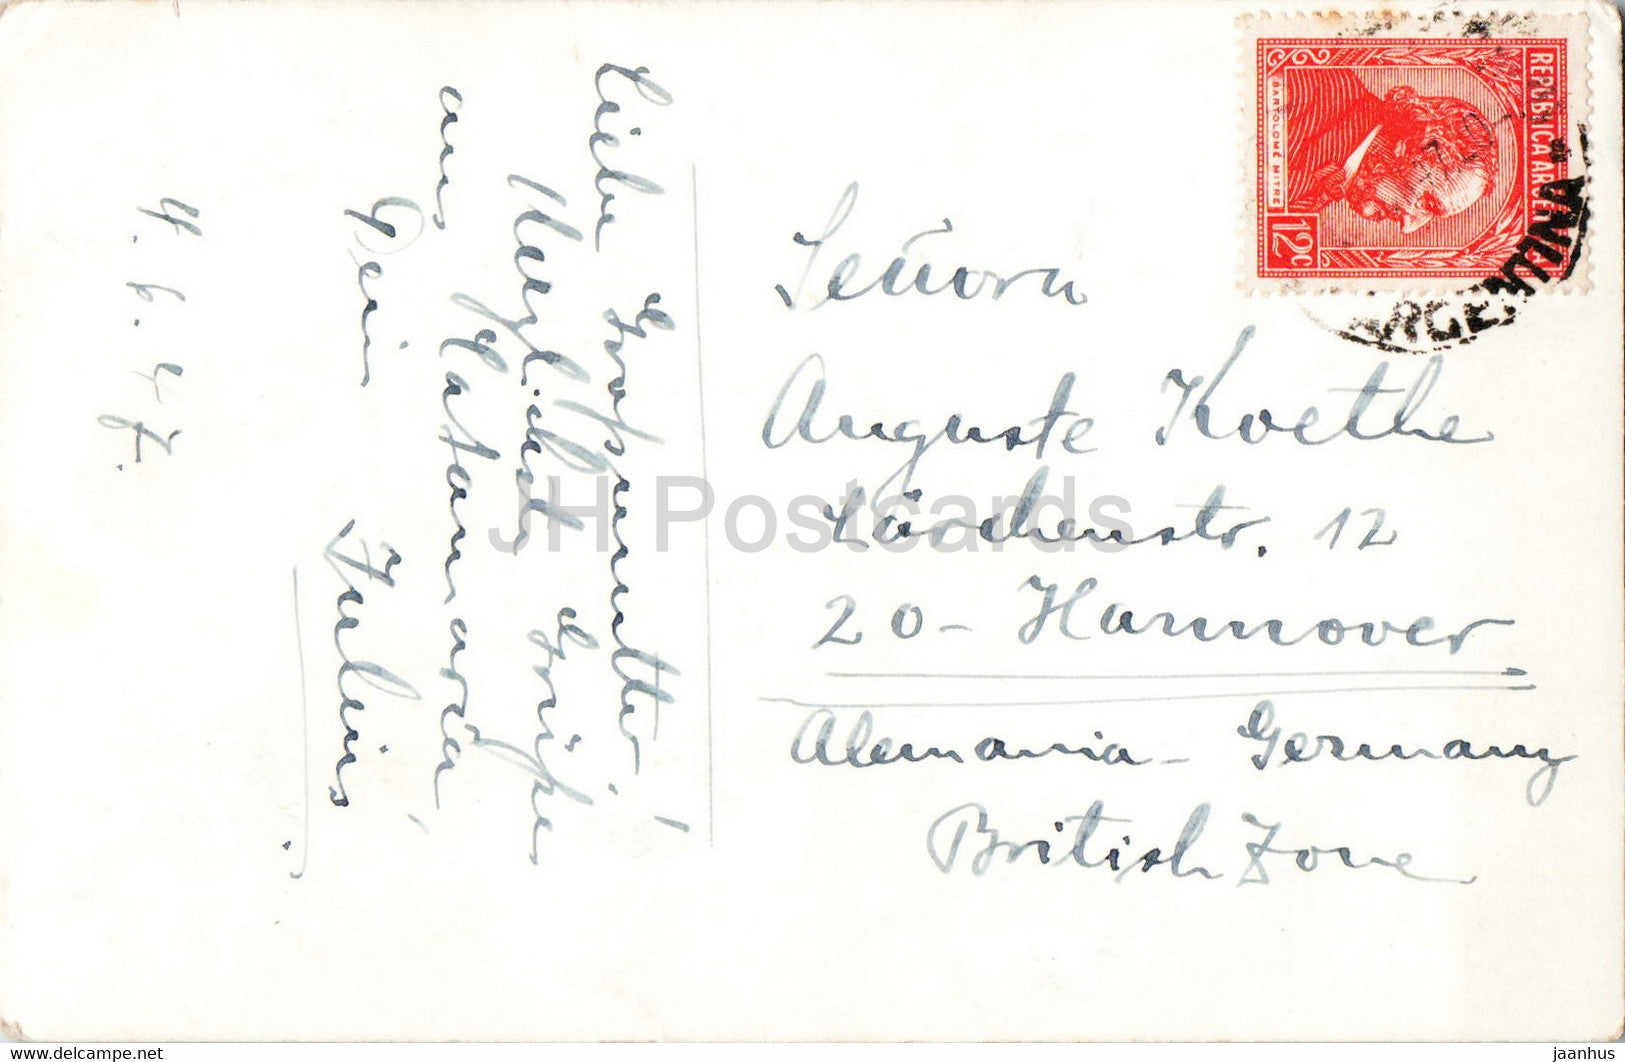 Liebe Großmutter!
Herzlichste Grüße
aus Catamarca
Dein Julius.
4. 6. 47.
Señora
Auguste Koethe
Lärchenstr. 12
20 - Hannover
Alemania - Germany
British Zone
REPUBLICA ARGENTINA
BARTOLOMÉ MITRE
12c
ARGENTINA
JH Postcards
www.delcampe.net
jaanhus